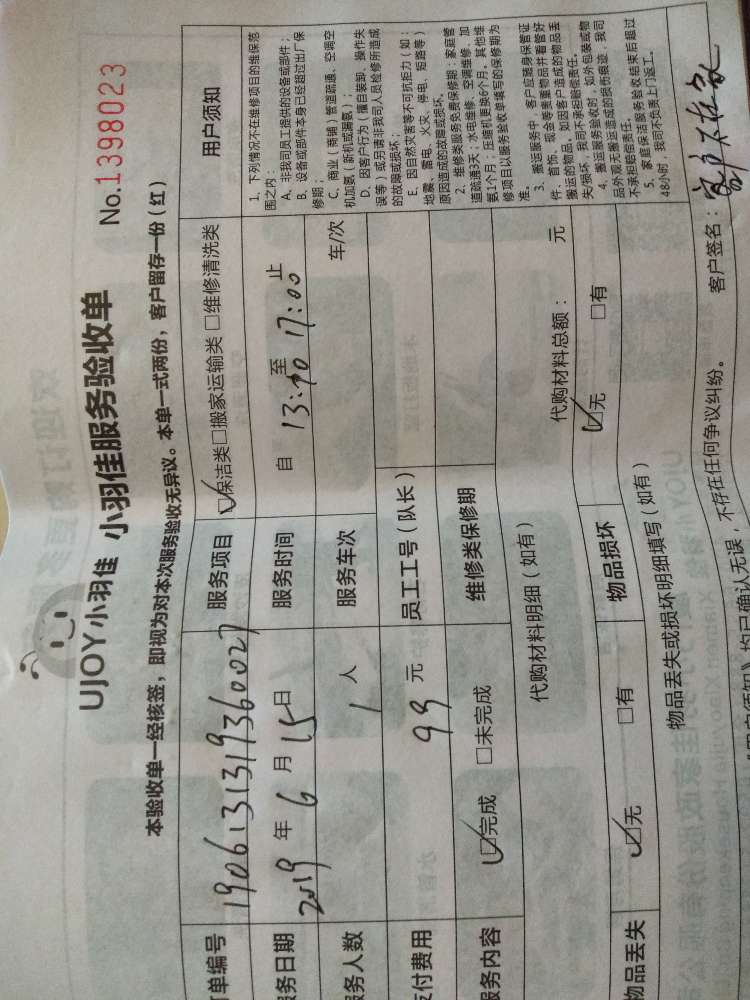 UJOY小羽佳 小羽佳服务验收单
No.1398023
本验收单一经核签，即视为对本次服务验收无异议。本单一式两份，客户留存一份（红）
单编号 1906131319360027 服务项目 保洁类 □搬家运输类 □维修清洗类 用户须知
务日期 2019 年 6 月 15 日 服务时间 自 13:40 至 17:00 止
务人数 1 人 服务车次 车/次
支付费用 99 元 员工工号（队长）
服务内容 □完成 □未完成 维修类保修期
代购材料明细（如有） 代购材料总额： 元
物品丢失 □无 □有 物品损坏 □无 □有
物品丢失或损坏明细填写（如有）
1、下列情况不在维修项目的维保范
围之内：
A、非我司员工提供的设备或部件；
B、设备或部件本身已经超过出厂保
修期；
C、商业（商铺）管道疏通、空调空
机加氨（新机或漏氨）；
D、因客户行为（擅自装卸、操作失
误等）或另请非我司人员检修所造成
的故障或损坏；
E、因自然灾害等不可抗拒力（如：
地震、雷电、火灾、停电、短路等）
原因造成的故障或损坏。
2、维修类服务免费保修期：家庭管
道疏通3天；水电维修、空调维修、加
氨1个月；压缩机更换6个月。其他维
修项目以服务验收单填写的保修期为
准。
3、搬运服务中，客户应随身保管证
件、首饰、现金等贵重物品并看管好
搬运的物品。如因客户造成的物品丢
失/损坏，我司不承担赔偿责任。
4、搬运服务验收时，如外包装或物
品外观无搬运造成的损伤痕迹，我司
不承担赔偿责任。
5、家庭保洁服务验收结束后超过
48小时，我司不负责上门返工。
《用户须知》均已确认无误，不存在任何争议纠纷。 客户签名：客户不在家